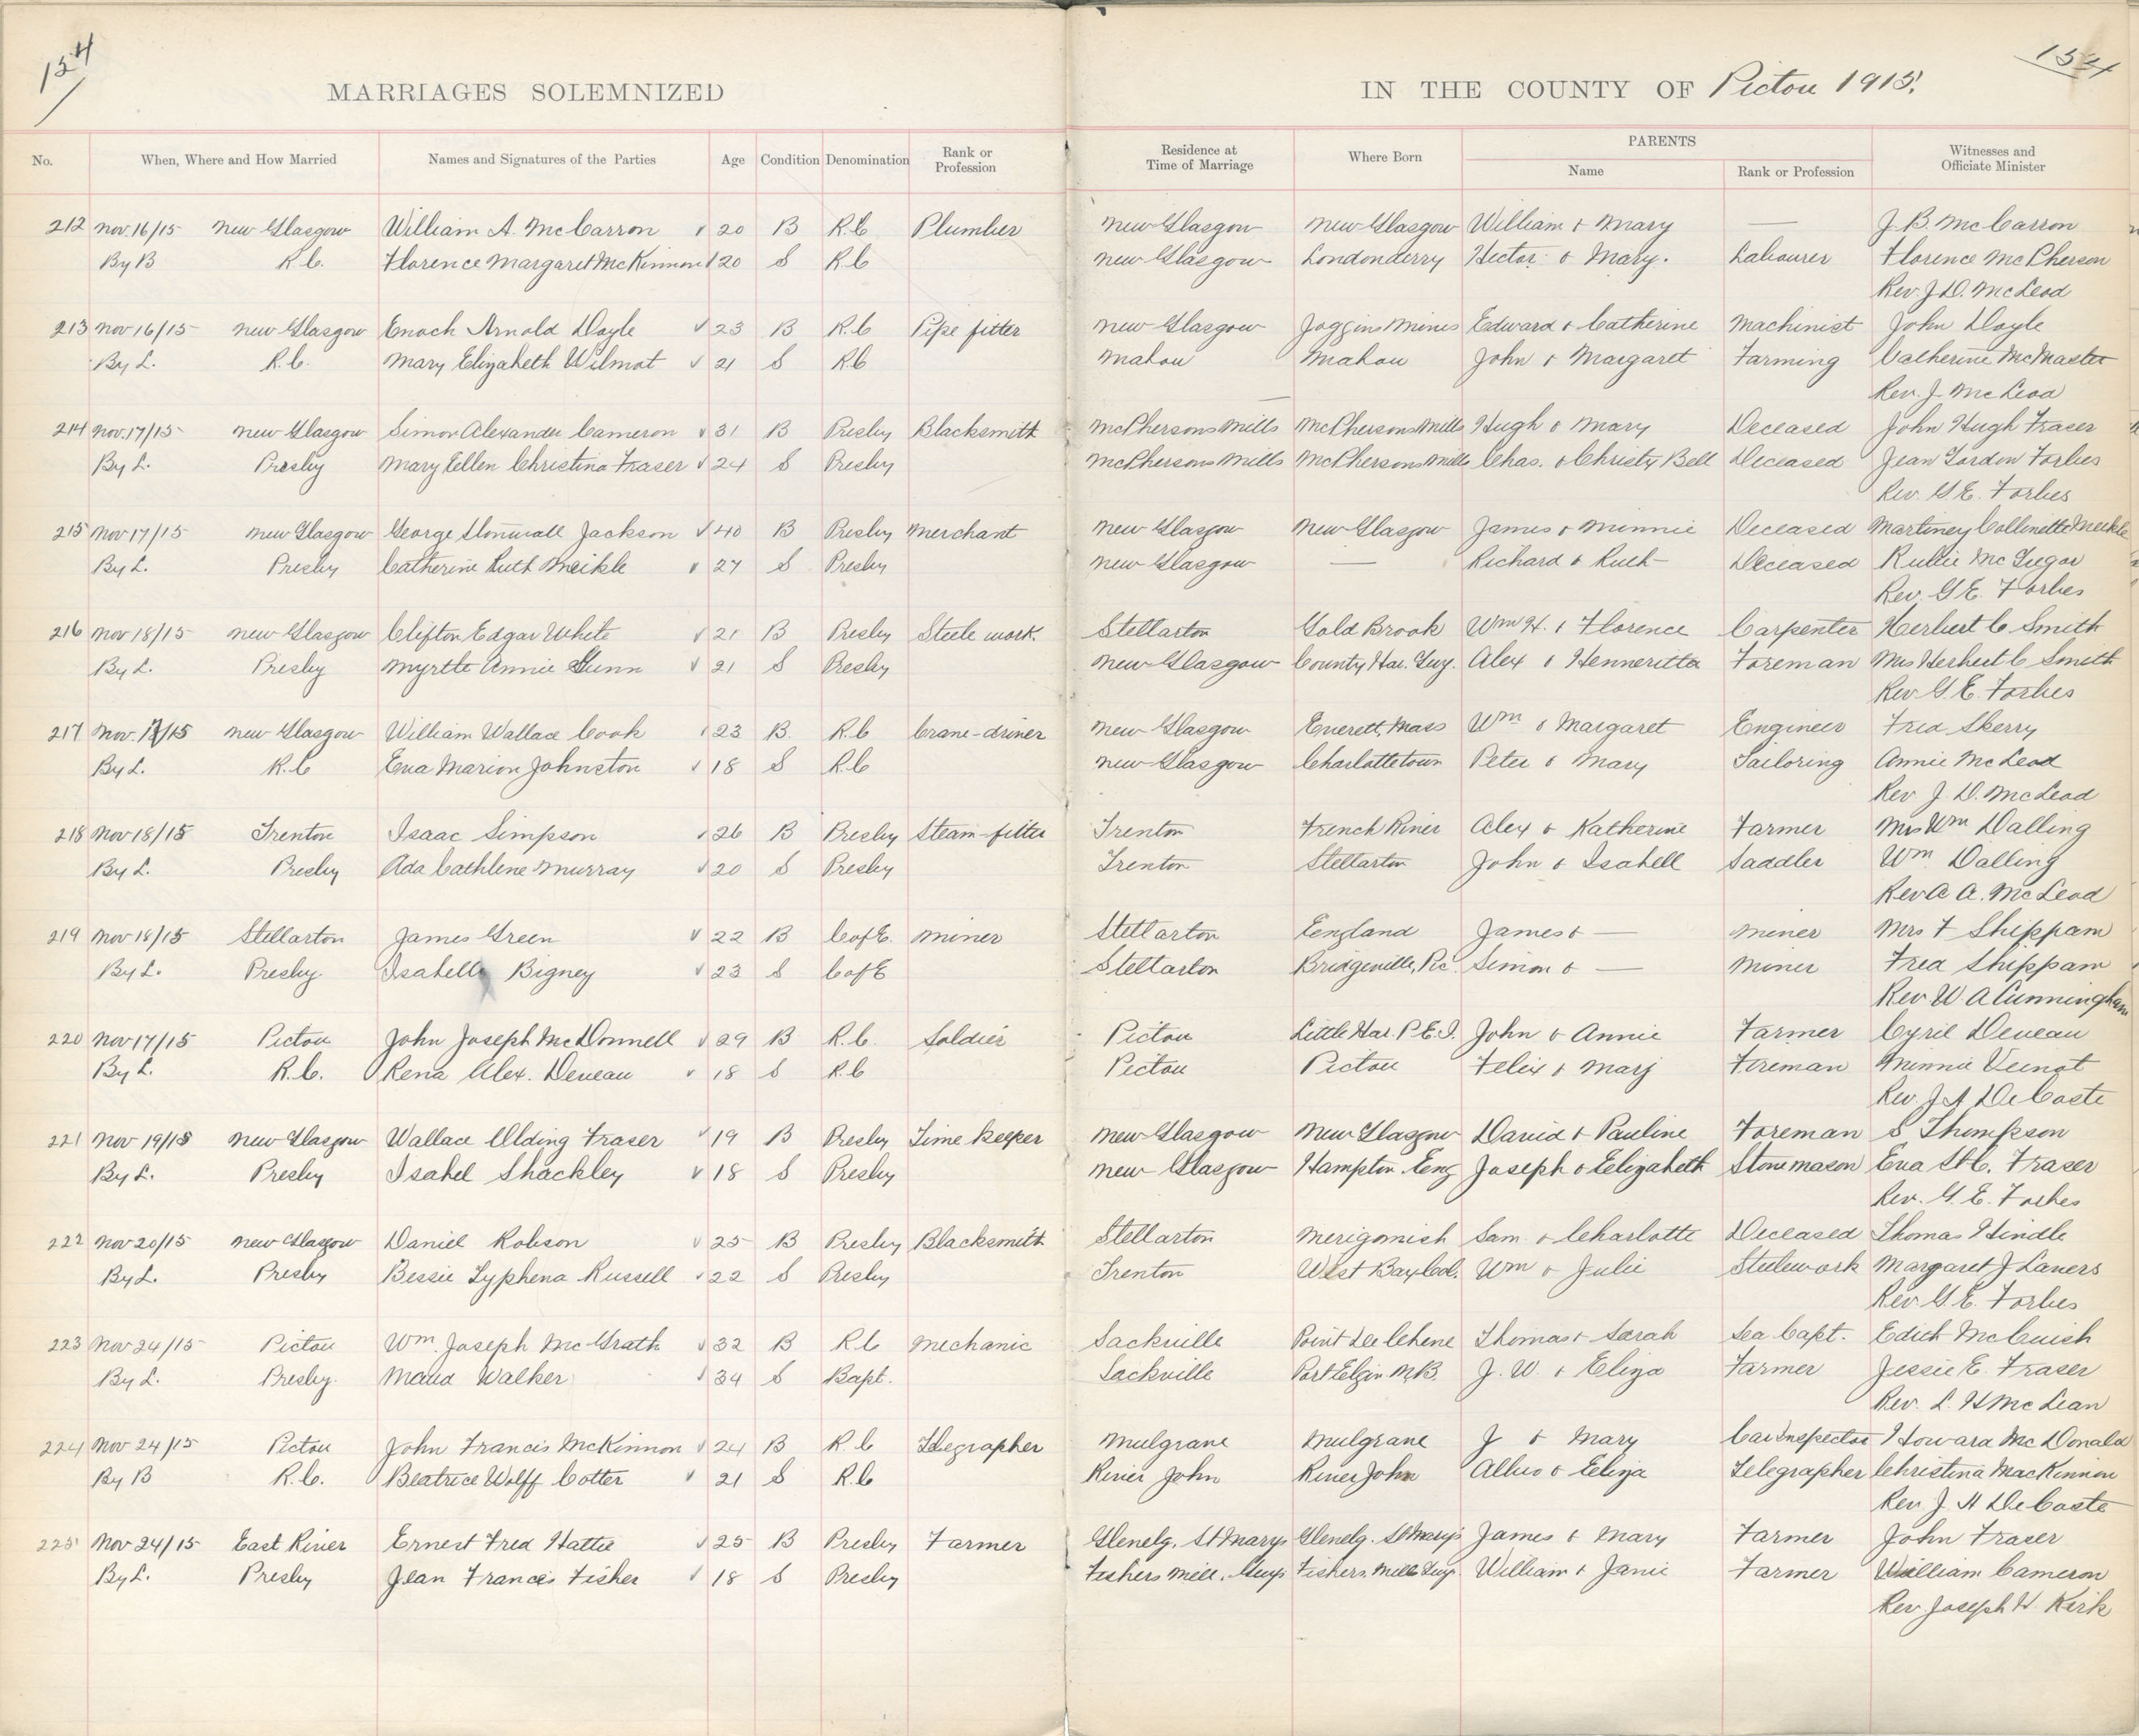 154
154
MARRIAGES SOLEMNIZED IN THE COUNTY OF Pictou 1915.
No. When, Where and How Married Names and Signatures of the Parties Age Condition Denomination Rank or Profession Residence at Time of Marriage Where Born PARENTS Name Rank or Profession Witnesses and Officiate Minister
212 Nov. 16/15 New Glasgow William A. McCarron 20 B R.C Plumber New Glasgow New Glasgow William & Mary — J. B. McCarron
By B R.C. Florence Margaret McKinnon 20 S R.C New Glasgow Londonderry Hector & Mary. Labourer Florence McPherson
Rev. J. D. McLeod
213 Nov 16/15 New Glasgow Enoch Arnold Doyle 23 B R.C Pipe fitter New Glasgow Joggins Mines Edward & Catherine Machinist John Doyle
By L. R.C. Mary Elizabeth Wilmot 21 S R.C Mabou Mabou John & Margaret Farming Catherine McMaster
Rev. J. McLeod
214 Nov. 17/15 New Glasgow Simon Alexander Cameron 31 B Presby Blacksmith McPhersons Mills McPhersons Mills Hugh & Mary Deceased John Hugh Fraser
By L. Presby Mary Ellen Christina Fraser 24 S Presby McPhersons Mills McPhersons Mills Chas. & Christy Bell Deceased Jean Gordon Forbes
Rev. G. E. Forbes
215 Nov 17/15 New Glasgow George Stonwall Jackson 40 B Presby Merchant New Glasgow New Glasgow James & Minnie Deceased Collinette Meikle
By L. Presby Catherine Ruth Meikle 27 S Presby New Glasgow — Richard & Ruth Deceased Rubie McGregor
Rev. G E. Forbes
216 Nov 18/15 New Glasgow Clifton Edgar White 21 B Presby Steele work. Stellarton Gold Brook Wm H. & Florence Carpenter Herbert C Smith
By L. Presby Myrtle Annie Gunn 21 S Presby New Glasgow County Har. Guy. Alex & Henneritta Foreman Mrs Herbert C Smith
Rev G E. Forbes
217 Nov. /15 New Glasgow William Wallace Cook 23 B. R.C Crane-driver New Glasgow Everett, Mass Wm & Margaret Engineer Fred Sherry
By L. R.C Eva Marion Johnston 18 S R.C New Glasgow Charlottetown Peter & Mary Tailoring Annie McLeod
Rev J. D. McLeod
218 Nov 18/15 Trenton Isaac Simpson 26 B Presby Steam-fitter Trenton French River Alex & Katherine Farmer Mrs Wm Dalling
By L. Presby Ada Cathlene Murray 20 S Presby Trenton Stellarton John & Isabell Saddler Wm Dalling
Rev A A. McLeod
219 Nov 18/15 Stellarton James Green 22 B C of E. Miner Stellarton England James & — Miner Mrs F Shippam
By L. Presby Isabella Bigney 23 S C of E Stellarton Bridgeville, Pic. Simon & — Miner Fred Shippam
Rev W. A Cunningham
220 Nov 17/15 Pictou John Joseph McDonnell 29 B R.C. Soldier Pictou Little Har. P.E.I. John & Annie Farmer Cyril Deveau
By L. R.C. Rena Alex. Deveau 18 S R.C Pictou Pictou Felix & Marj Foreman Minnie Vernot
Rev. J A DeCoste
221 Nov 19/15 New Glasgow Wallace Olding Fraser 19 B Presby Time keeper New Glasgow New Glasgow David & Pauline Foreman S Thompson
By L. Presby Isabel Shackley 18 S Presby New Glasgow Hampton Eng Joseph & Elizabeth Stonemason Eva St C. Fraser
Rev. G. E. Forbes
222 Nov 20/15 New Glasgow Daniel Robson 25 B Presby Blacksmith Stellarton Merigomish Sam. & Charlotte Deceased Thomas Hindle
By L. Presby Bessie Typhena Russell 22 S Presby Trenton West Bay Col. Wm & Julie Steelework Margaret J Laners
Rev. G. E. Forbes
223 Nov 24/15 Pictou Wm. Joseph McGrath 32 B R.C Mechanic Sackville Point De Chene Thomas & Sarah Sea Capt. Edith McCuish
By L. Presby. Maud Walker 34 S Bapt. Sackville Port Elgin N.B. J. W. & Eliza Farmer Jessie E. Fraser
Rev. L. H McLean
224 Nov 24/15 Pictou John Francis McKinnon 24 B R.C Telegrapher Mulgrave Mulgrave J & Mary Car Inspector Howard McDonald
By B R.C. Beatrice Wolff Cotter 21 S R.C River John River John & Eliza Telegrapher Christina MacKinnon
Rev. J. A DeCoste
225 Nov 24/15 East River Ernest Fred Hattie 25 B Presby Farmer Glenelg, St Marys Glenelg. St Mary's James & Mary Farmer John Fraser
By L. Presby Jean Francis Fisher 18 S Presby Fishers Mill. Guys Fishers Mills Guys. William & Janie Farmer William Cameron
Rev. Joseph H. Kirk